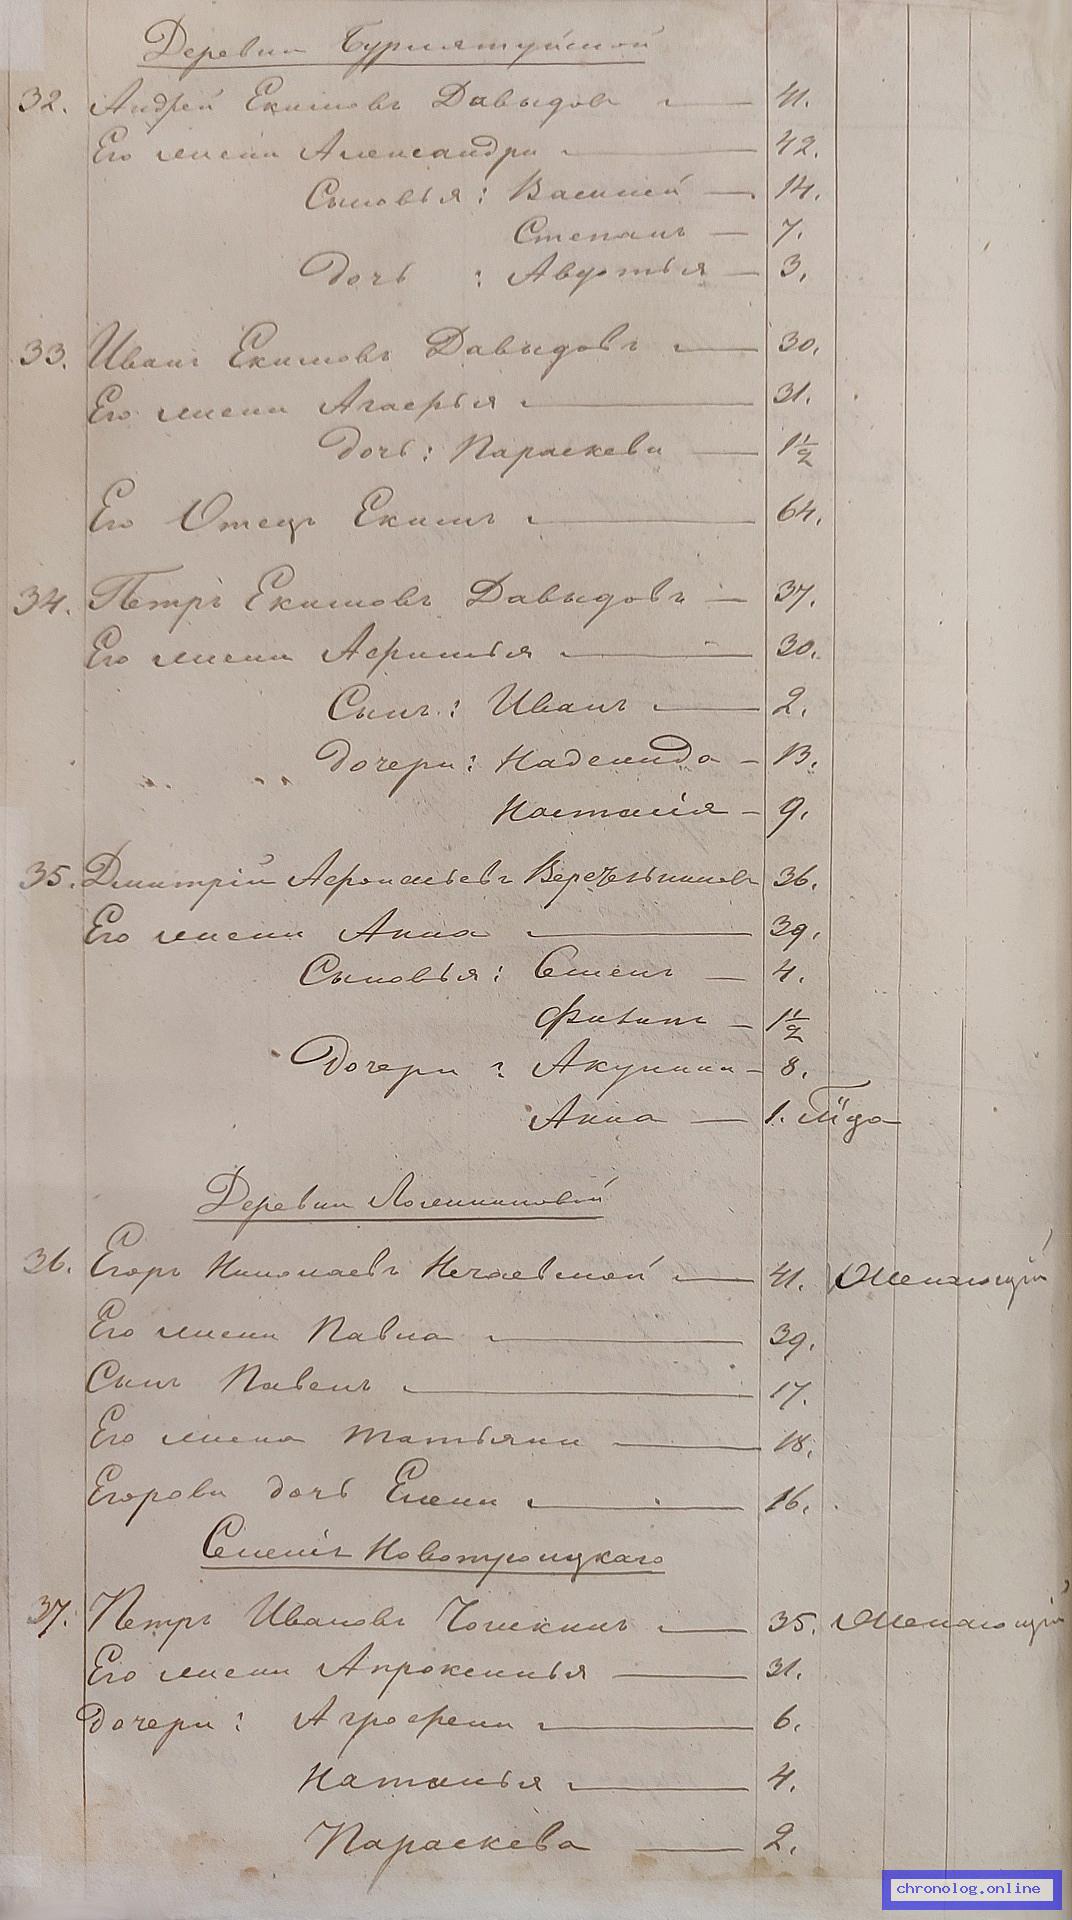 Деревни Бурлятуйской
32. Андрей Екимовъ Давыдовъ 41.
Его жена Александра 42.
Сыновья: Василий 14.
Степанъ 7.
Дочь: Авдотья 3.
33. Иванъ Екимовъ Давыдовъ 30.
Его жена Агафья 31.
Дочь: Параскева 1 1/2
Его Отецъ Екимъ 64.
34. Петръ Екимовъ Давыдовъ 37.
Его жена Афимья 30.
Сынъ: Иванъ 2.
Дочери: Надежда 13.
9.
35. Дмитрій 36.
Его жена Анна 39.
Сыновья: Семенъ 4.
Филипъ 1 1/2
Дочери: Акулина 8.
Анна 1. года
Деревни
36. Егоръ Николаевъ Нечаевской 41. Желающій
Его жена Павла 39.
Сынъ Павелъ 17.
Его жена Татьяна 18.
Егорова дочь Елена 16.
Селенія Новотроицкаго
37. Петръ Ивановъ 35. Желающій
Его жена Апроксинья 31.
Дочери: Аграфена 6.
Наталья 4.
Параскева 2.
chronolog.online